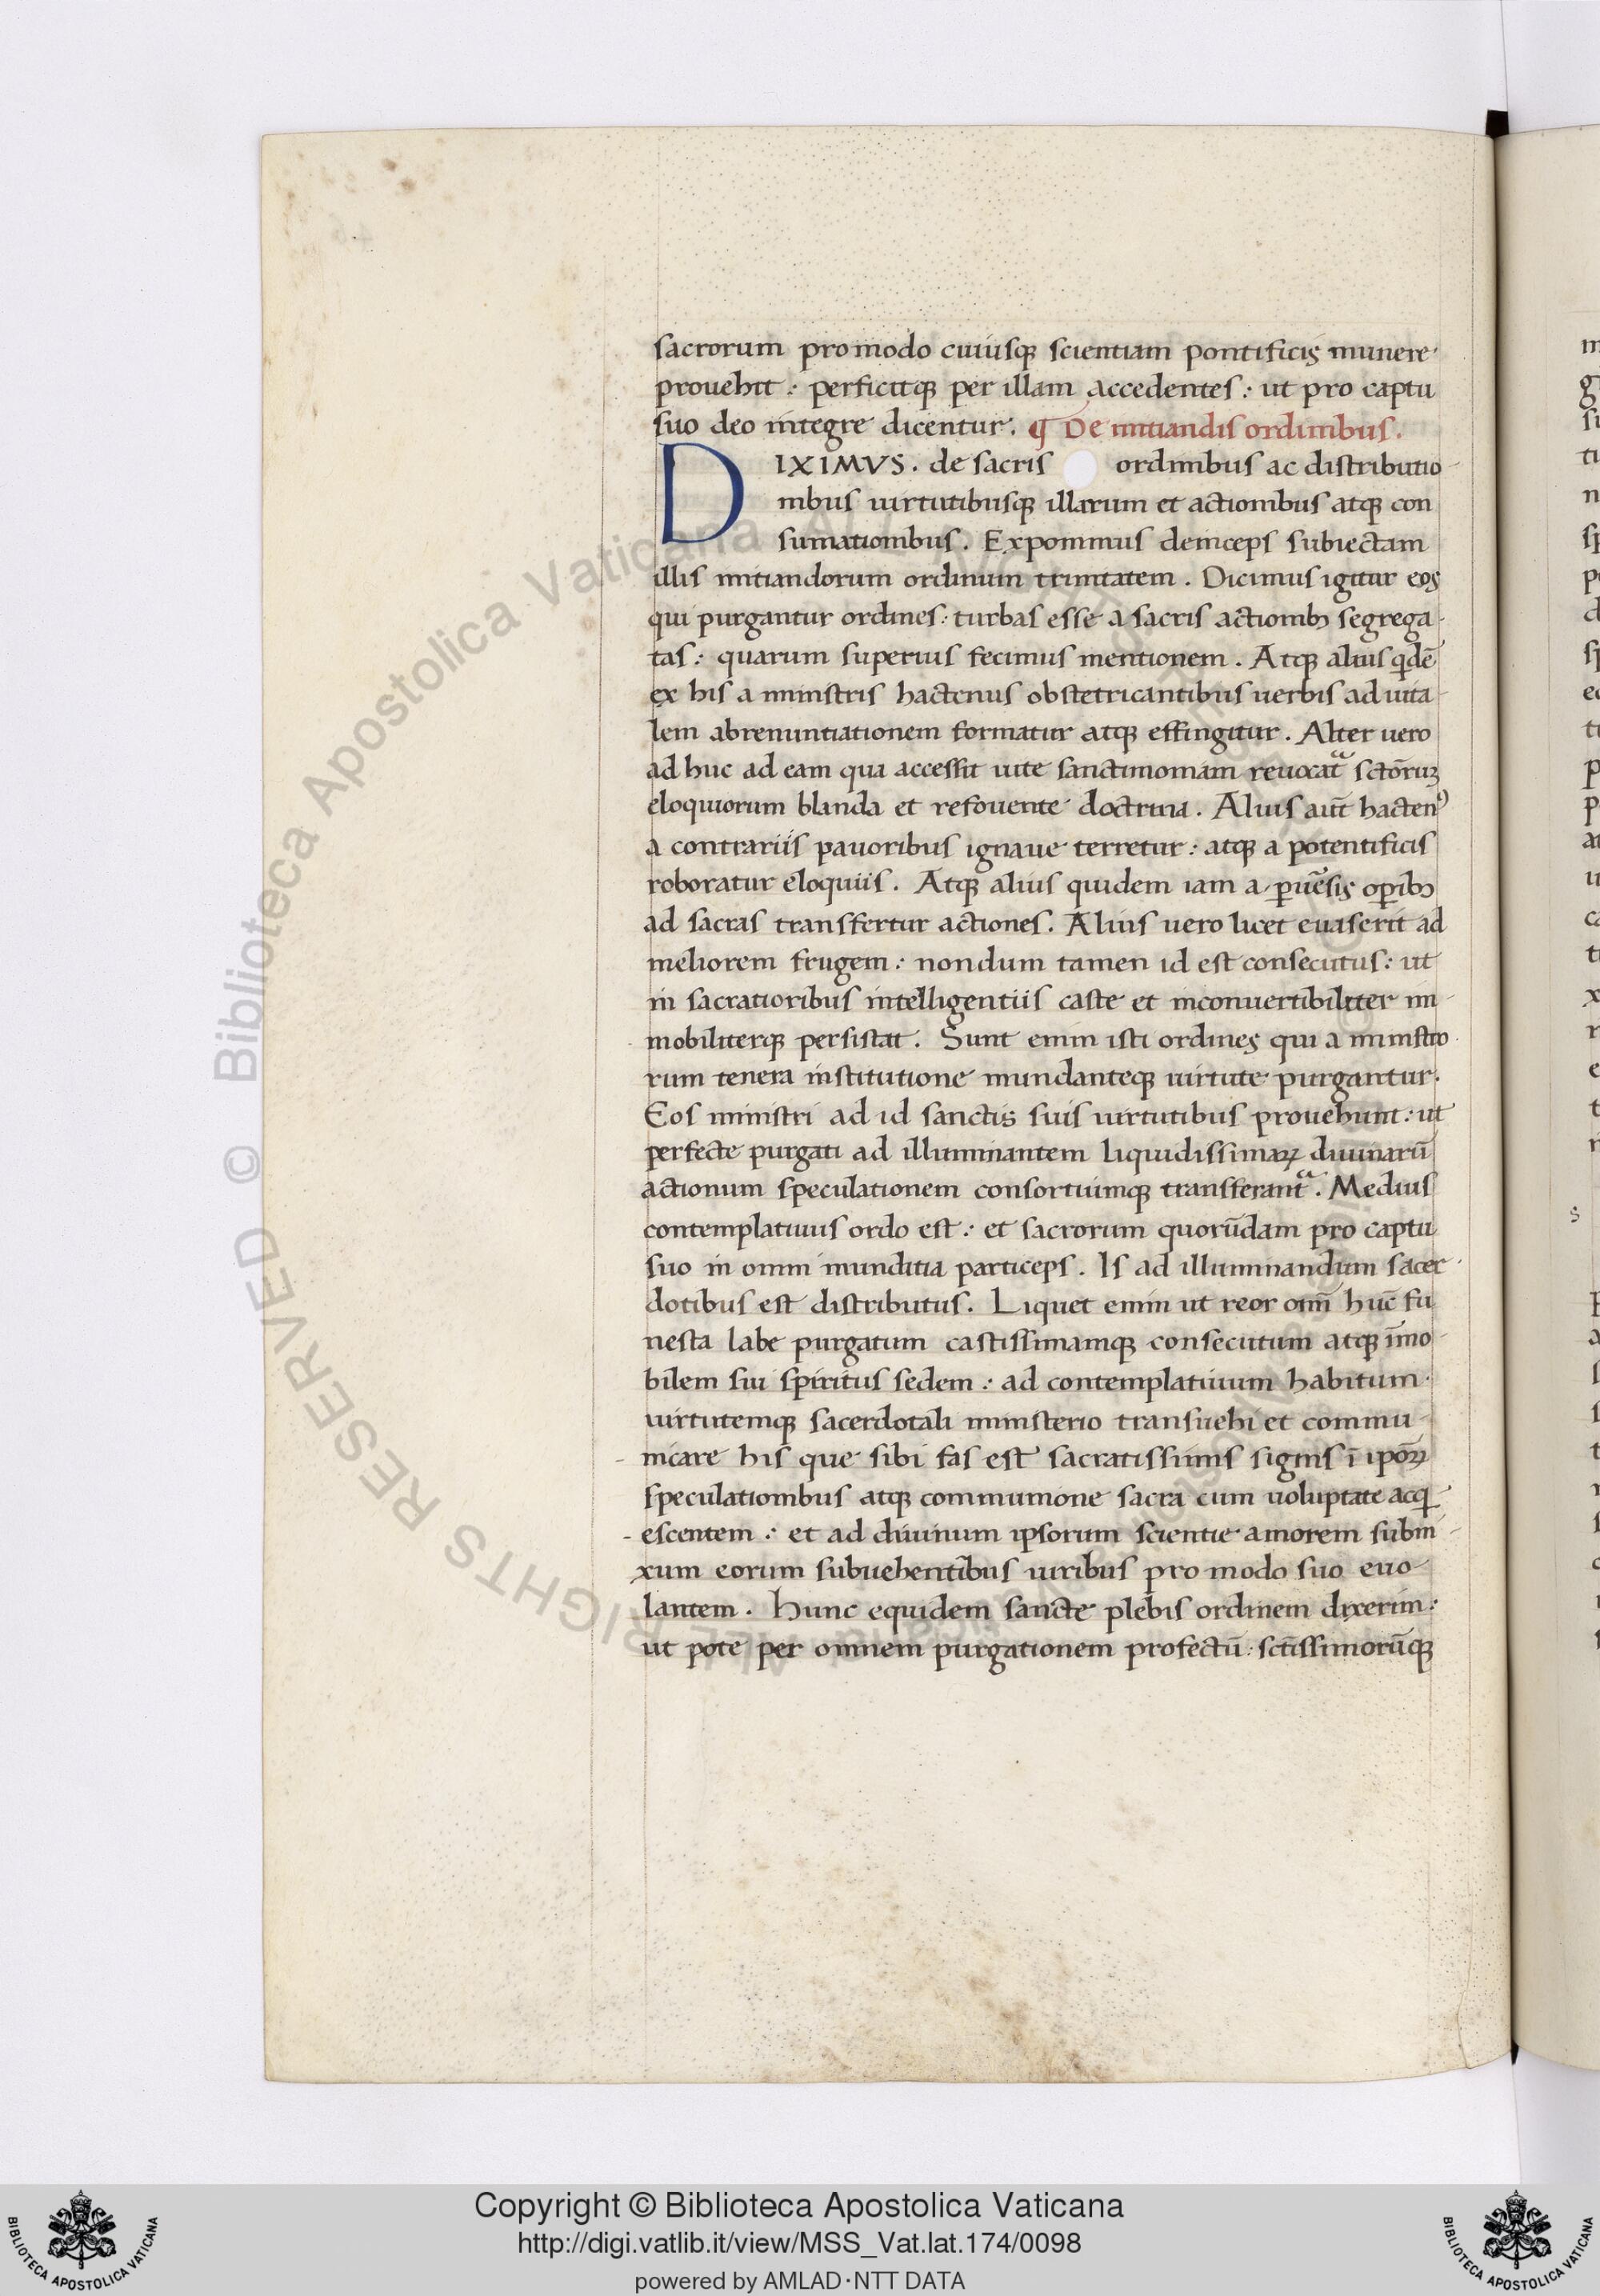 sacrorum pro modo cuiusq; scientiam pontificis munere
prouehit : perficitq; per illam accedentes : ut pro captu
suo deo integre dicentur . ¶ De initiandis ordinibus .
DIXIMVS . de sacris ordinibus ac distributio
nibus uirtutibusq; illarum et actionibus atq; con
sumationibus . Exponimus deinceps subiectam
illis initiandorum ordinum trinitatem . Dicimus igitur eos
qui purgantur ordines : turbas esse a sacris actionibꝫ segrega
tas : quarum superius fecimus mentionem . Atq; alius qidē
ex his a ministris hactenus obstetricantibus uerbis ad uita
lem abrenuntiationem formatur atq; effingitur . Alter uero
ad huc ad eam qua accessit uite sanctimoniam reuocatᵃ sctōruꝫ
eloquiorum blanda et refouente doctrina . Alius aut̄ hactenꝰ
a contrariis pauoribus ignaue terretur : atq; a potentificis
roboratur eloquiis . Atq; alius quidem iam a ꝑuēsis oꝑibꝫ
ad sacras transfertur actiones . Alius uero licet euaserit ad
meliorem frugem : nondum tamen id est consecutus : ut
in sacratioribus intelligentiis caste et inconuertibiliter im
mobiliterq; persistat . Sunt enim isti ordines qui a ministro
rum tenera institutione mundanteq; uirtute purgantur .
Eos ministri ad id sanctis suis uirtutibus prouehunt : ut
perfecte purgati ad illuminantem liquidissimaꝝ diuinarū
actionum speculationem consortiumq; transferantᵃ . Medius
contemplatiuus ordo est : et sacrorum quorūdam pro captu
suo in omni munditia particeps . Is ad illuminandum sacer
dotibus est distributus . Liquet enim ut reor om̄ huc̄ fu
nesta labe purgatum castissimamq; consecutum atq; īmo
bilem sui spiritus sedem : ad contemplatiuum habitum
uirtutemq; sacerdotali ministerio transuehi et commu
nicare his que sibi fas est sacratissimis signis ī ipōꝝ
speculationibus atq; communione sacra cum uoluptate acq
escentem : et ad diuinum ipsorum scientie amorem subni
xum eorum subuehentibus uiribus pro modo suo euo
lantem . Hunc equidem sancte plebis ordinem dixerim :
ut pote per omnem purgationem profectū : sctīssimorūq;
Copyright © Biblioteca Apostolica Vaticana
http://digi.vatlib.it/view/MSS_Vat.lat.174/0098
powered by AMLAD·NTT DATA